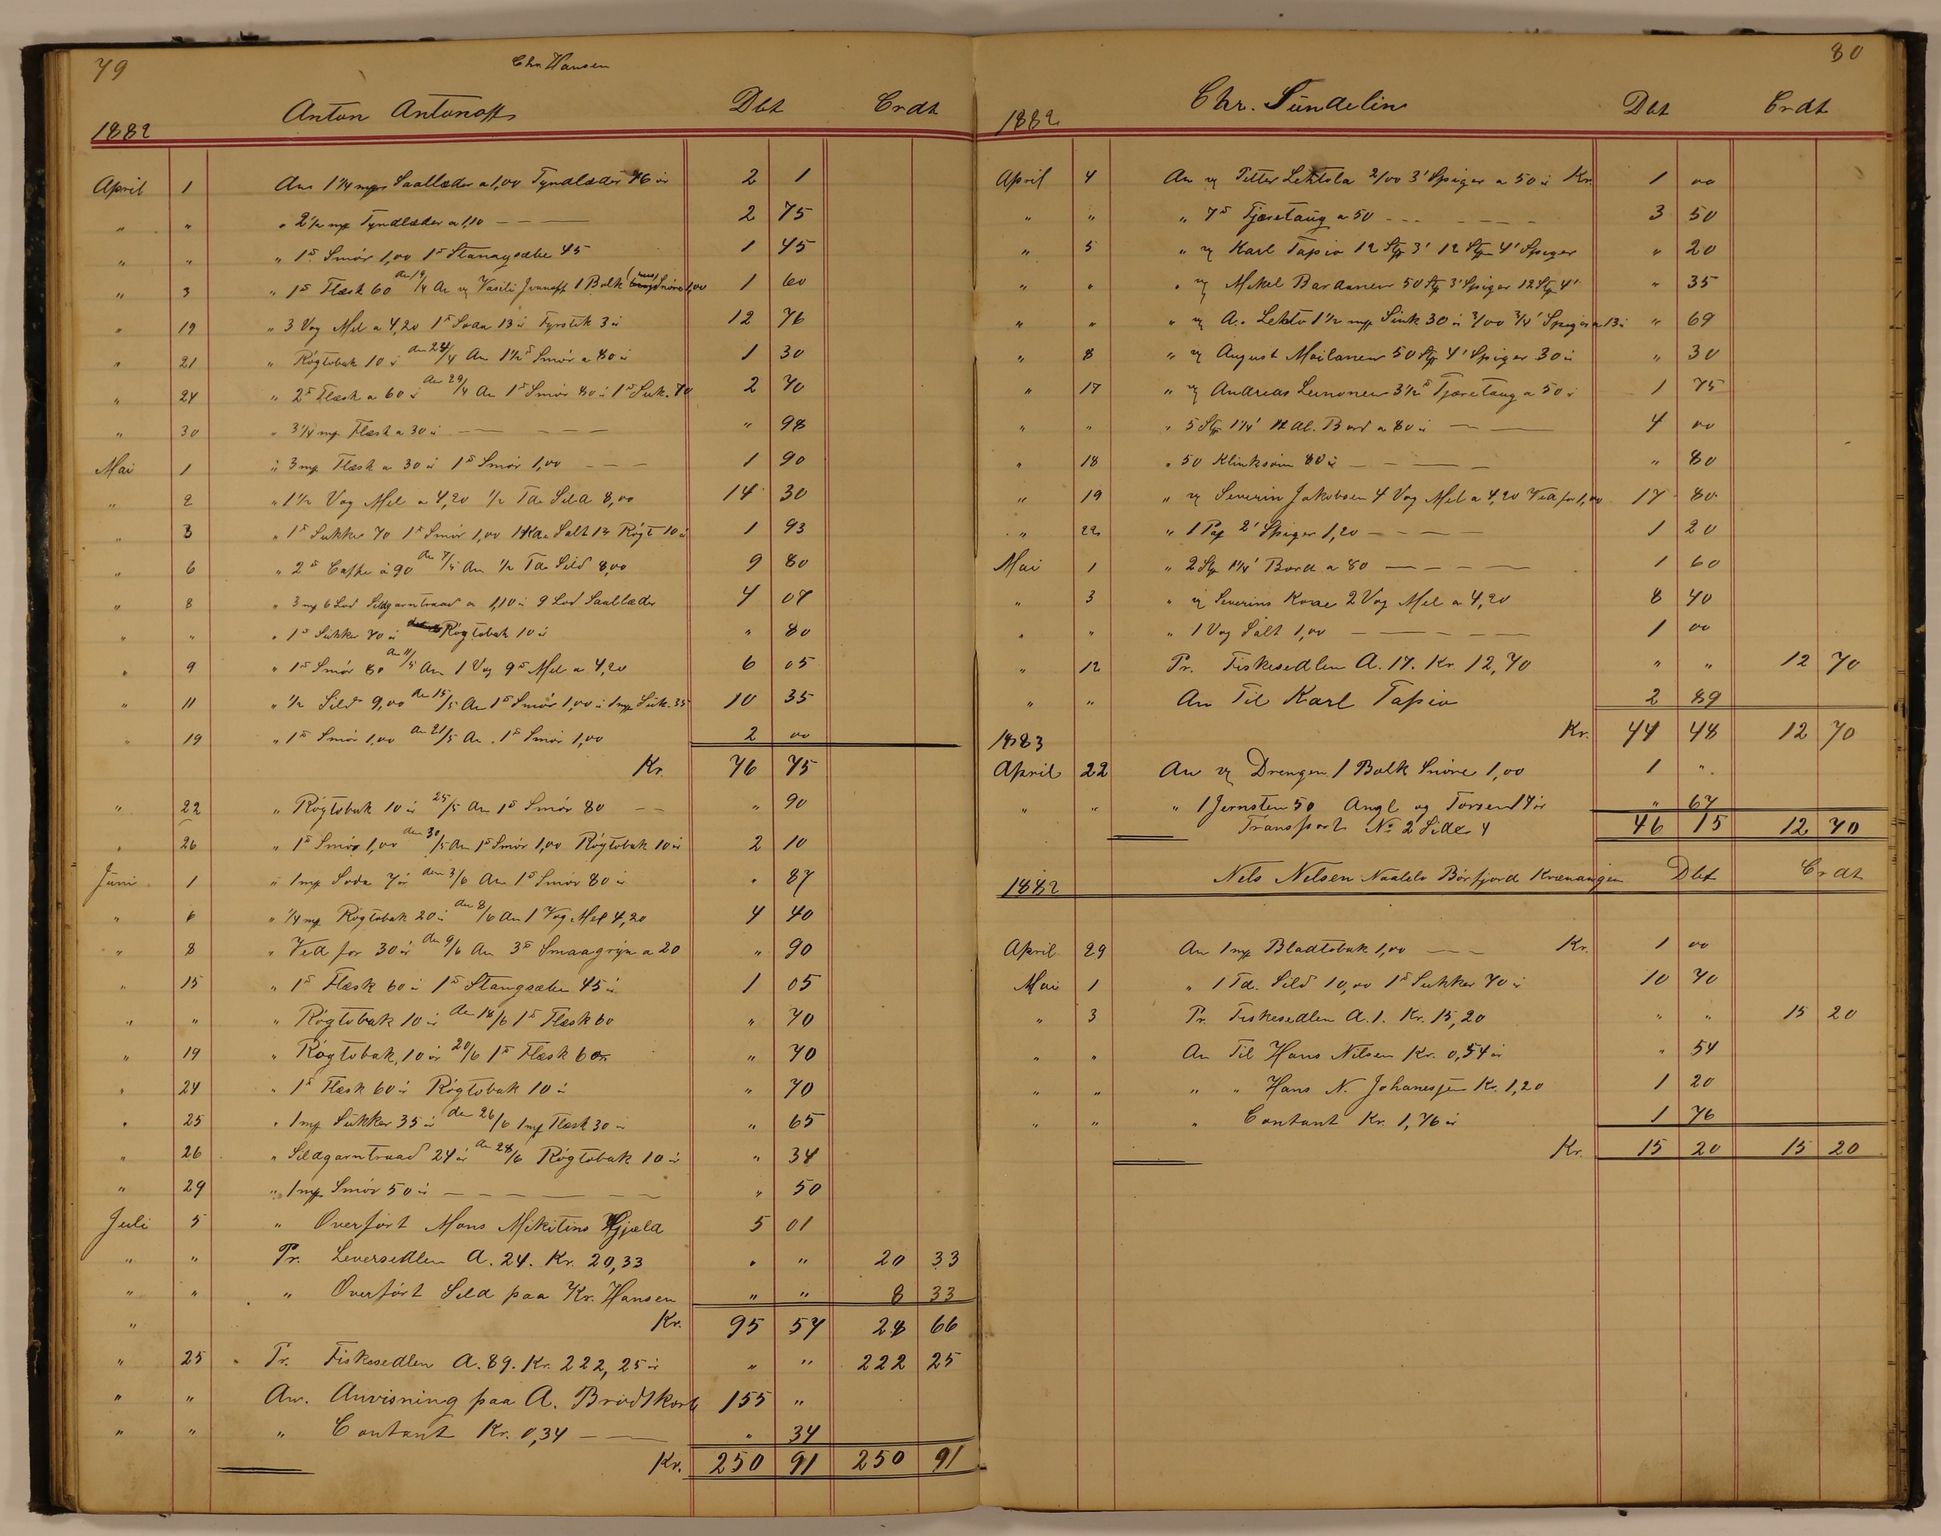 79
Chr Hansen
Anton Antonoff Dbt Crdt
1882
April 1 An 1 1/4 mp Saallæder a 1,00 Tyndlæder 76 ör 2 1
" " " 2 1/2 mp Tyndlæder a 1,10 — — — 2 75
" " " 1 ℔ Smör 1,00 1 ℔ Stangsæbe 45 1 45
" 3 " 1 ℔ Flæsk 60 den 19/4 An v Vasili Ivanoff 1 Bolk Snöre 1,00 1 60
" 19 " 3 Vog Mel a 4,20 1 ℔ Soda 13 ör Fyrstik 3 ör 12 76
" 21 " Rögtobak 10 ör den 24/4 An 1 1/2 ℔ Smör a 80 ör 1 30
" 24 " 2 ℔ Flæsk a 60 ör den 29/4 An 1 ℔ Smör 80 ör 1 ℔ Suk. 70 2 70
" 30 " 3 1/4 mp Flæsk a 30 ör — — — " 98
Mai 1 " 3 mp Flæsk a 30 ör 1 ℔ Smör 1,00 — — — 1 90
" 2 " 1 1/2 Vog Mel a 4,20 1/2 Tde Sild 8,00 14 30
" 3 " 1 ℔ Sukker 70 1 ℔ Smör 1,00 1 Kde Salt 13 Rögt 10 ör 1 93
" 6 " 2 ℔ Caffe a 90 den 7/5 An 1/2 Tde Sild 8,00 9 80
" 8 " 3 mp 6 Lod Sildgarntraad a 1,10 ör 9 Lod Saallæder 4 04
" " " 1 ℔ Sukker 70 ör Rögtobak 10 ör " 80
" 9 " 1 ℔ Smör 80 den 11/5 An 1 Vog 9 ℔ Mel a 4,20 6 05
" 11 " 1/2 Sild 9,00 den 15/5 An 1 ℔ Smör 1,00 ör 1 mp Suk. 35 10 35
" 19 " 1 ℔ Smör 1,00 den 21/5 An 1 ℔ Smör 1,00 2 00
Kr. 76 75
" 22 " Rögtobak 10 ör 25/5 An 1 ℔ Smör 80 — — " 90
" 26 " 1 ℔ Smör 1,00 den 30/5 An 1 ℔ Smör 1,00 Rögtobak 10 ör 2 10
Juni 1 " 1 mp Soda 7 ör den 3/6 An 1 ℔ Smör 80 ör " 87
" 6 " 1/4 mp Rögtobak 20 ör den 8/6 An 1 Vog Mel 4,20 4 40
" 8 " Ved for 30 ör den 9/6 An 3 ℔ Smaagryn a 20 " 90
" 15 " 1 ℔ Flæsk 60 ör 1 ℔ Stangsæbe 45 ör 1 05
" " " Rögtobak 10 ör den 18/6 1 ℔ Flæsk 60 " 70
" 19 " Rögtobak 10 ör 20/6 1 ℔ Flæsk 60 ör " 70
" 24 " 1 ℔ Flæsk 60 ör Rögtobak 10 ör " 70
" 25 " 1 mp Sukker 35 ör den 26/6 1 mp Flæsk 30 ör " 65
" 26 " Sildgarntraad 24 ör den 28/6 Rögtobak 10 ör " 34
" 29 " 1 mp Smör 50 ör — — — — " 50
Juli 5 " Overfört Mons Mikitins Gjæld 5 01
" " Pr. Leversedlen A. 24. Kr. 20,33 " " 20 33
" " " Overfört Sild paa Kr. Hansen " " 8 33
" Kr. 95 57 28 66
" 25 Pr. Fiskesedlen A. 89. Kr. 222,25 ör " " 222 25
" " An Anvisning paa A. Brodtkorb 155 "
" " " Contant Kr. 0,34 — — " 34
Kr. 250 91 250 91
80
Chr. Sundelin Dbt Crdt
1882
April 4 An v Petter Lehtola 2/00 3' Spiger a 50 ör Kr. 1 00
" " " 7 ℔ Tjæretaug a 50 — — — 3 50
" 5 " v Karl Tapio 12 Stp 3' 12 Stp 4' Spiger " 20
" " " v Mikel Bardanen 50 Stp 3' Spiger 12 Stp 4' " 35
" " " v A. Lehto 1 1/2 mp Sink 30 ör 3/00 3/4' Spiger a 13 ör " 69
" 8 " v August Mailanen 50 Stp 4' Spiger 30 ör " 30
" 17 " v Andreas Leinonen 3 1/2 ℔ Tjæretaug a 50 ör 1 75
" " " 5 Stp 1 1/4' 12 Al. Bord a 80 ör — — 4 00
" 18 " 50 Klinksöm 80 ör — — — " 80
" 19 " v Severin Jakobsen 4 Vog Mel a 4,20 Ved for 1,00 17 80
" 22 " 1 Pap 2' Spiger 1,20 — — — — 1 20
Mai 1 " 2 Stp 1 1/4' Bord a 80 — — — — 1 60
" 3 " v Severins Kone 2 Vog Mel a 4,20 8 40
" " " 1 Vog Salt 1,00 — — — — 1 00
" 12 Pr. Fiskesedlen A. 17. Kr. 12,70 " " 12 70
" " An Til Karl Tapio 2 89
Kr. 44 48 12 70
1883
April 22 An v Drengen 1 Bolk Snöre 1,00 1 "
" " " 1 Jernsten 50 Angl og Torsen 17 ör " 67
Transport No 2 Side 4 46 15 12 70
Nils Nilsen Naalelv Börfjord Kvænangen Dbt Crdt
1882
April 29 An 1 mp Bladtobak 1,00 — — Kr. 1 00
Mai 1 " 1 Td. Sild 10,00 1 ℔ Sukker 70 ör 10 70
" 3 Pr. Fiskesedlen A. 1. Kr. 15,20 " " 15 20
" " An Til Hans Nilsen Kr. 0,54 ör " 54
" " " " Hans N. Johanessen Kr. 1,20 1 20
" " " Contant Kr. 1,76 ör 1 76
Kr. 15 20 15 20